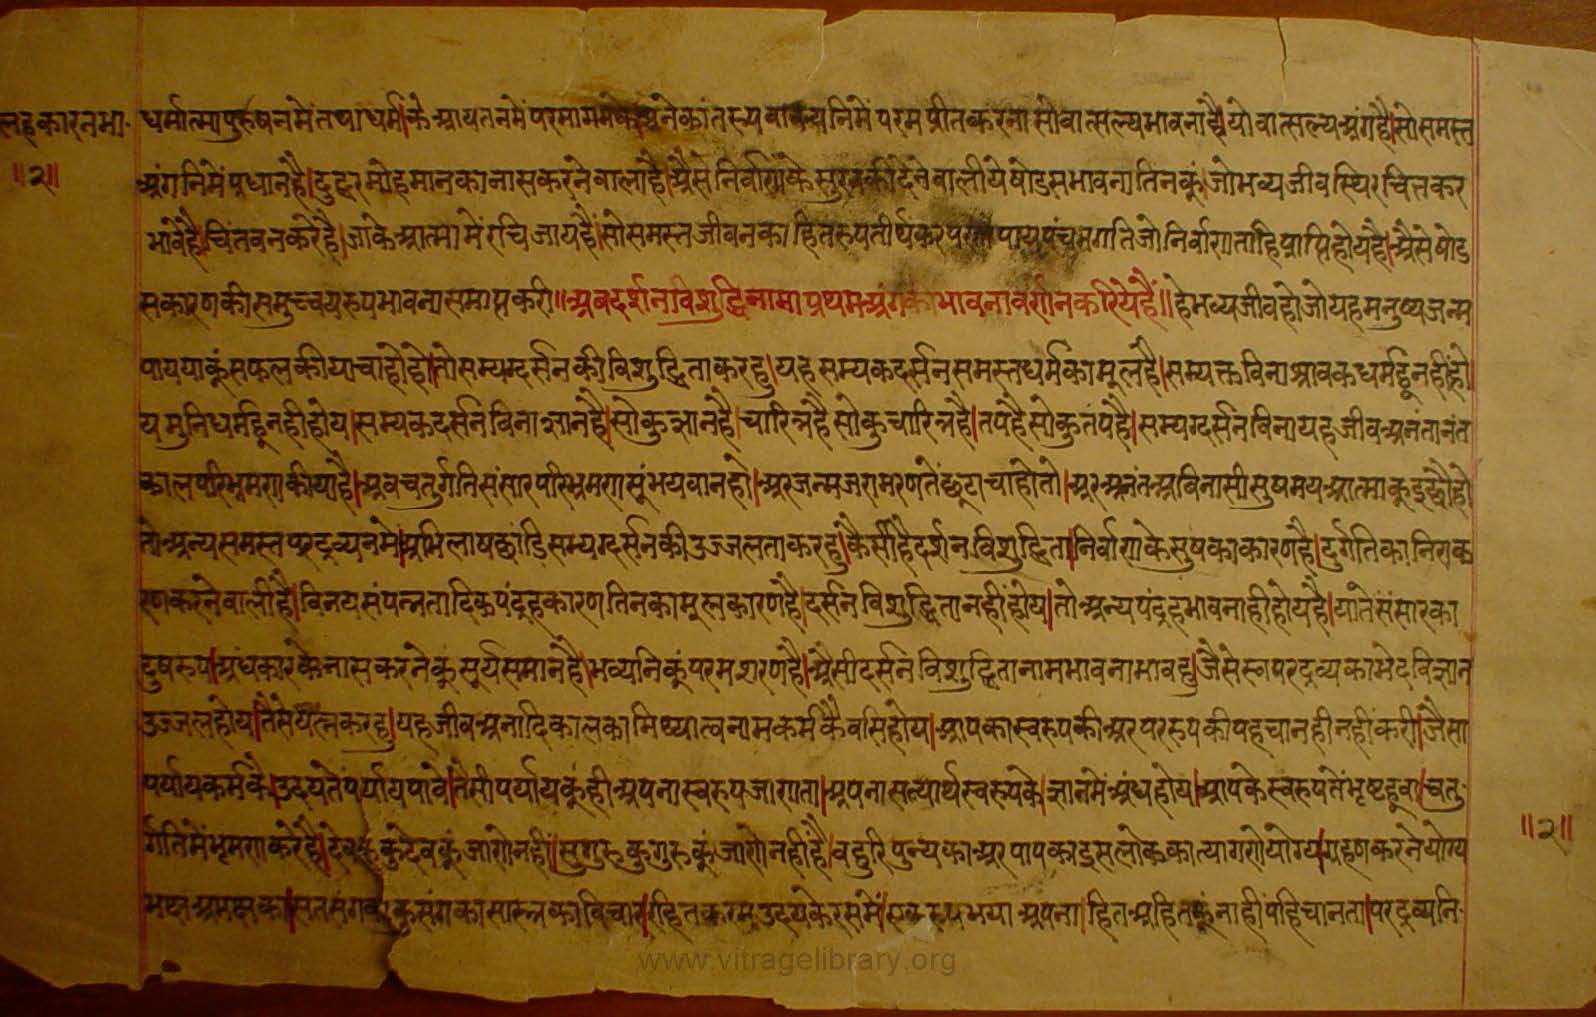 लहकारनभा॰
॥२॥
धर्मात्मापुरुषनमेंतथाधर्मकेआयतनमेंपरमागममेंअनेकांतस्यवाक्यनिमेंपरमप्रीतकरनासोवात्सल्यभावनाहैयोवात्सल्यअंगहै।सोसमस्त
अंगनिमेंप्रधानहै।दुद्धरमोहमानकानासकरनेवालाहै।अैसेनिर्वाणकेसुखकीदेनेवालीयेषोडसभावनातिनकुं।जोभव्यजीवस्थिरचित्तकर
भावेहै।चिंतवनकरेहै।जाकेआत्मामेंरचिजायहै।सोसमस्तजीवनकाहितरुपतीर्थंकरपणापायपंचमगतिजोनिर्वाणताहिप्राप्तिहोयहै।अैसेषोड
सकारणकीसमुच्चयरुपभावनासमाप्तकरी॥अबदर्शनविशुद्धिनामाप्रथमअंगकाभावनावर्णनकरियेहैं॥हेभव्यजीवहोजोयहमनुष्यजन्म
पाययाकुंसफलकीयाचाहोहो।तोसम्यग्दर्सनकीविशुद्धिताकरहु।यहसम्यकदर्सनसमस्तधर्मकामूलहै।सम्यक्तविनाश्रावकधर्महूनहीहो।
यमुनिधर्महूनहीहोय।सम्यकदर्सनविनाज्ञानहै।सोकुज्ञानहै।चारित्रहैसोकुचारित्रहै।तपहैसोकुतपहै।सम्यग्दर्सनविनायहजीवअनंतानंत
कालपरिभ्रमणकीयाहै।अबचतुर्गतिसंसारपरिभ्रमणसूंभयवानहो।अरजन्मजरामरणतेंछूटाचाहोतो।अरअनंतअविनासीसुषमयआत्माकूइछौहो
तोअन्यसमस्तपरद्रव्यनमेंअभिलाषछांडिसम्यग्दर्सनकीउज्जलताकरहु।कैसीहैदर्शनविशुद्धिता।निर्वाणकेसुषकाकारणहै।दुर्गतिकानिराक
रणकरनेवालीहै।विनयसंपन्नतादिकपंद्रहकारणतिनकामूलकारणहै।दर्सनविशुद्धितानहींहोय।तोअन्यपंद्रहभावनाहीहोयहै।यातेसंसारका
दुषरुपअंधकारकैनासकरनेकुंसूर्यसमानहै।भव्यनिकुंपरमशरणहै।अैसीदर्सनविशुद्धितानामभावनाभावहु।जैसेस्वपरद्रव्यकाभेदविज्ञान
उज्जलहोय।तैसेयत्नकरहु।यहजीवअनादिकालकामिथ्यात्वनामकर्मकैवसिहोय।आपकास्वरुपकीअरपररुपकीपहचानहीनहींकरी।जैसा
पर्यायकर्मकै।उदयतेंपर्यायपावे।तैसीपर्यायकुंहीअपनास्वरुपजाणता।अपनासत्यार्थस्वरुपके।ज्ञानमेंअंधहोय।आपकेस्वरुपतेंभृष्टहूवा।चतु॰
र्गतिमेंभ्रमणकरेहै।देवकुदेवकुंजाणेनहीं।सुगुरुकुगुरुकुंजाणेनहींहै।बहुरिपुन्यकाअरपापकाइसलोककात्यागणेयोग्यग्रहणकरनेयोग्य
भक्षअभक्षका।सतसंगकाकुसंगकासास्त्रकाविचाररहितकरमउदयकेरसमेंएकरुपभयाअपनाहितअहितकूंनाहींपहिचानता।परद्रव्यनि॰
॥२॥
www.vitragelibrary.org